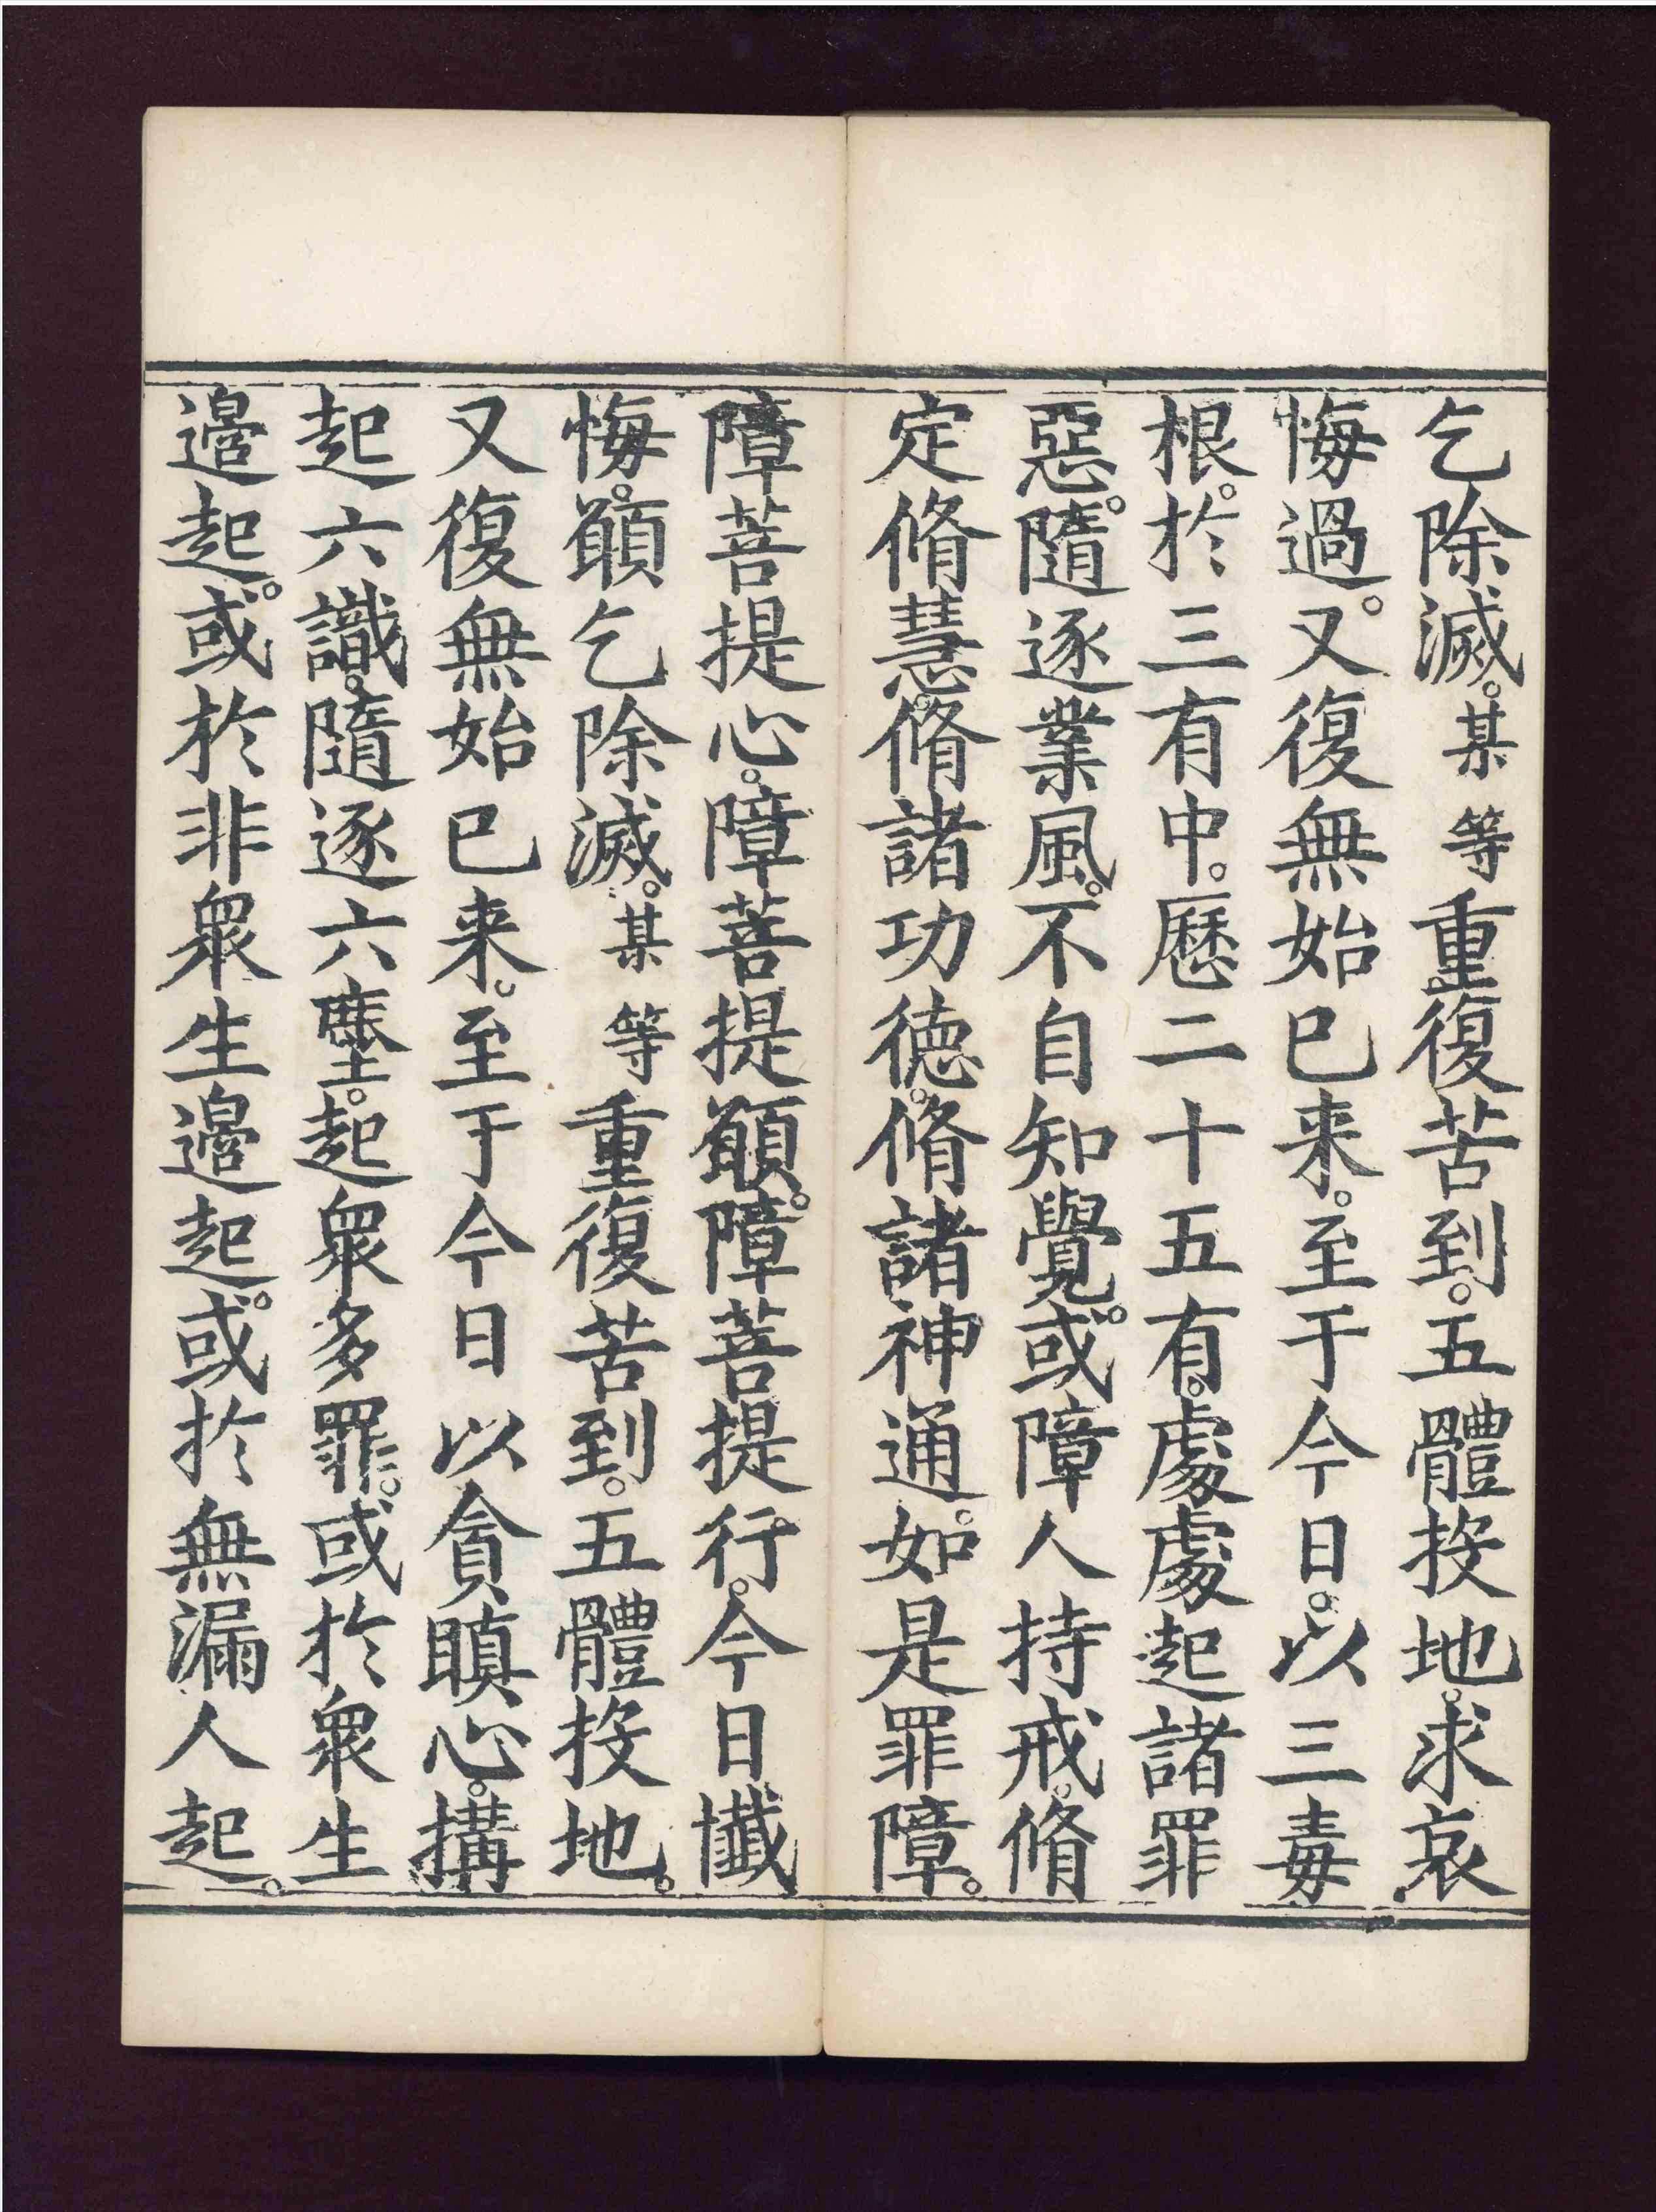 乞除滅。某等重復苦到。五體投地。求哀
悔過。又復無始已来。至于今日。以三毒
根。於三有中。歷二十五有。處處起諸罪
惡。隨逐業風。不自知覺。或障人持戒。脩
定脩慧。脩諸功德。脩諸神通。如是罪障。
障菩提心。障菩提願。障菩提行。今日懺
悔。願乞除滅。某等重復苦到。五體投地。
又復無始已来。至于今日以貪瞋心。搆
起六識。隨逐六塵。起衆多罪。或於衆生
邊起。或於非衆生邊起。或於無漏人起。